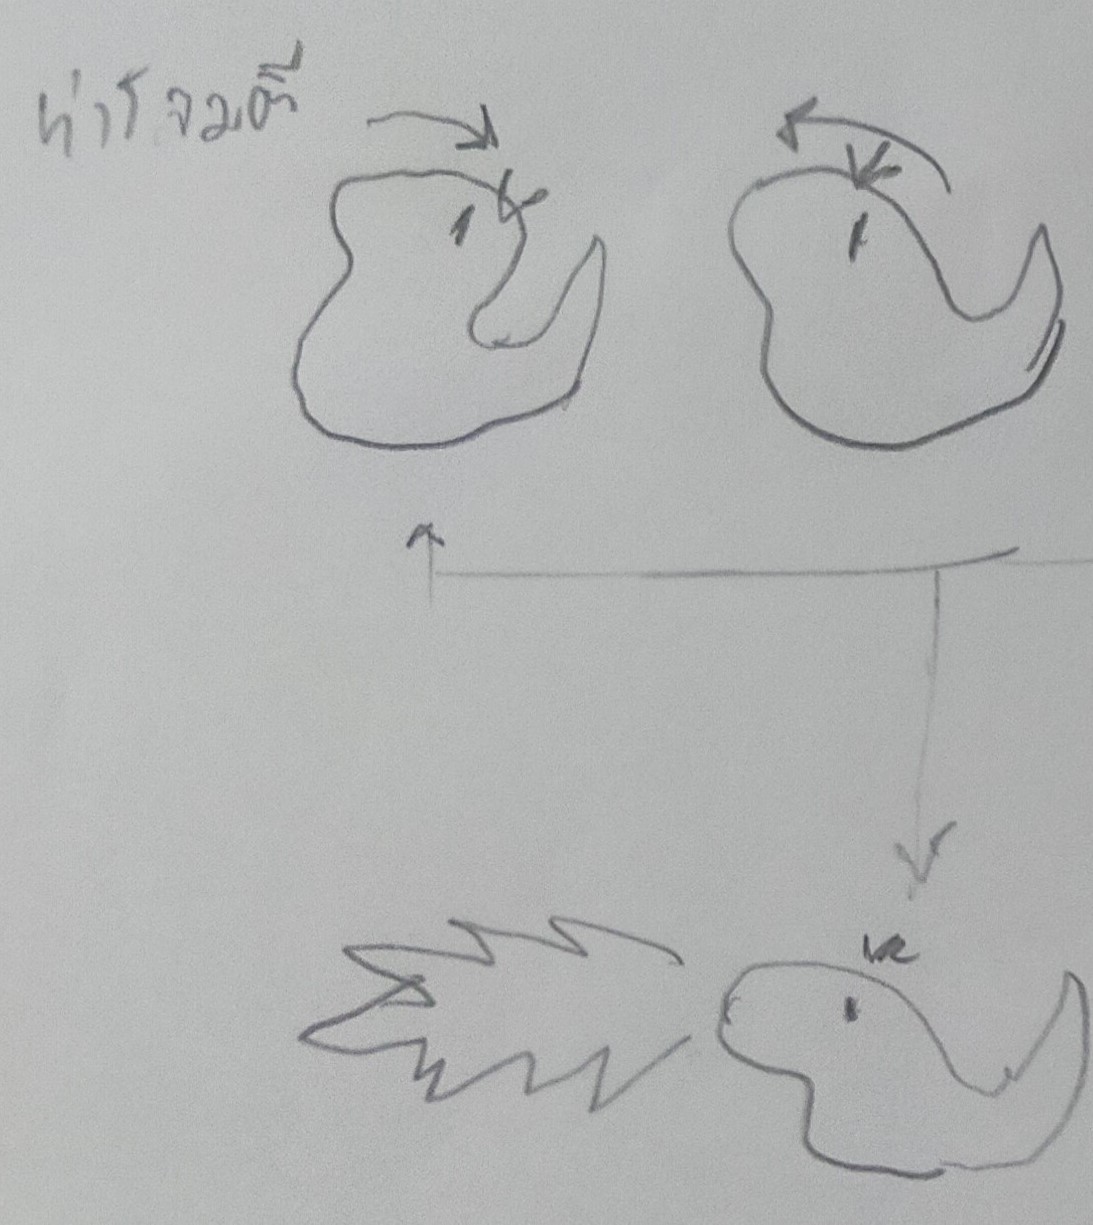 ท่าโจมตี